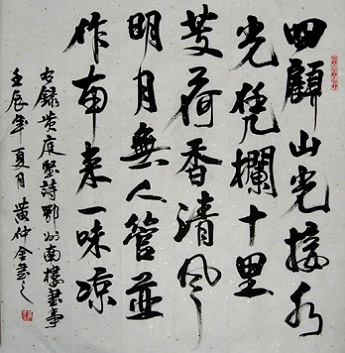 四顧山光接水
光凭欄十里
芰荷香清風
明月無人管並
作南来一味凉
右録黄庭堅詩鄂州南樓書事
壬辰年夏月黄仲金書之